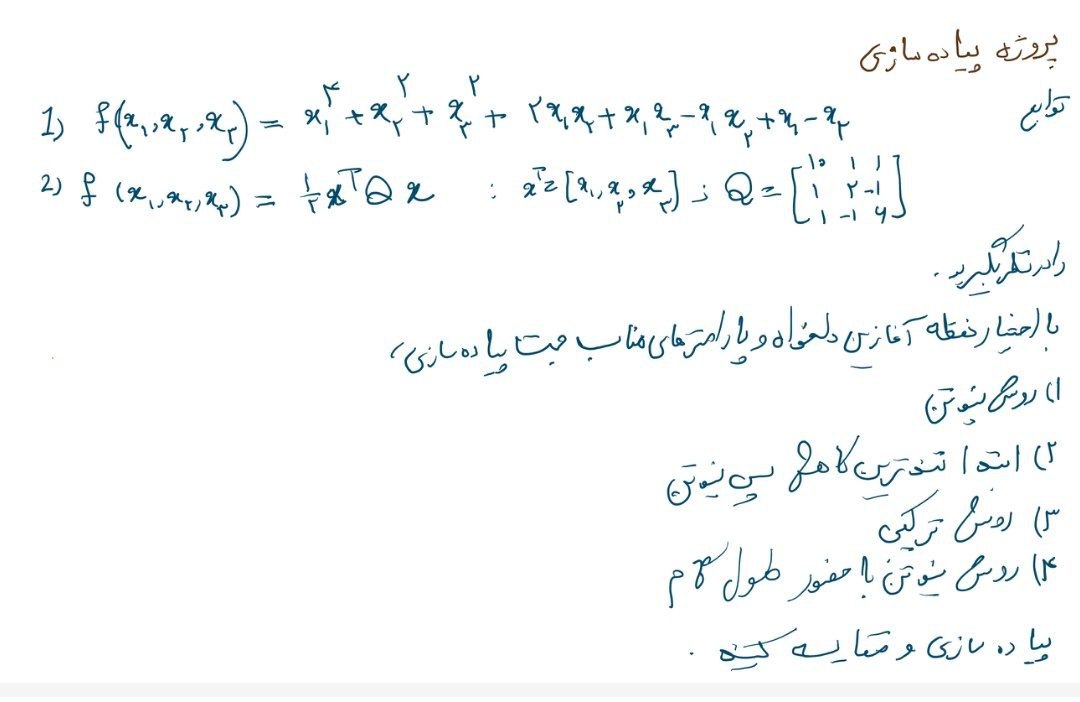 پروژه پیاده سازی
توابع
1) f(x₁,x₂,x₃) = x₁⁴ + x₂² + x₃² + ۲x₁x₂ + x₁x₃ - x₁x₂ + x₁ - x₂
2) f(x₁,x₂,x₃) = ½ xᵀQx : xᵀ = [x₁,x₂,x₃] ; Q = [۱۰ ۱ ۱; ۱ ۲ -۱; ۱ -۱ ۴]
را در نظر بگیرید.
با اختیار نقطه آغازین دلخواه و پارامترهای مناسب جهت پیاده سازی،
۱) روش نیوتن
۲) ابتدا تندترین کاهش سپس نیوتن
۳) روش ترکیبی
۴) روش نیوتن با حضور طول گام
پیاده سازی و مقایسه کنید.